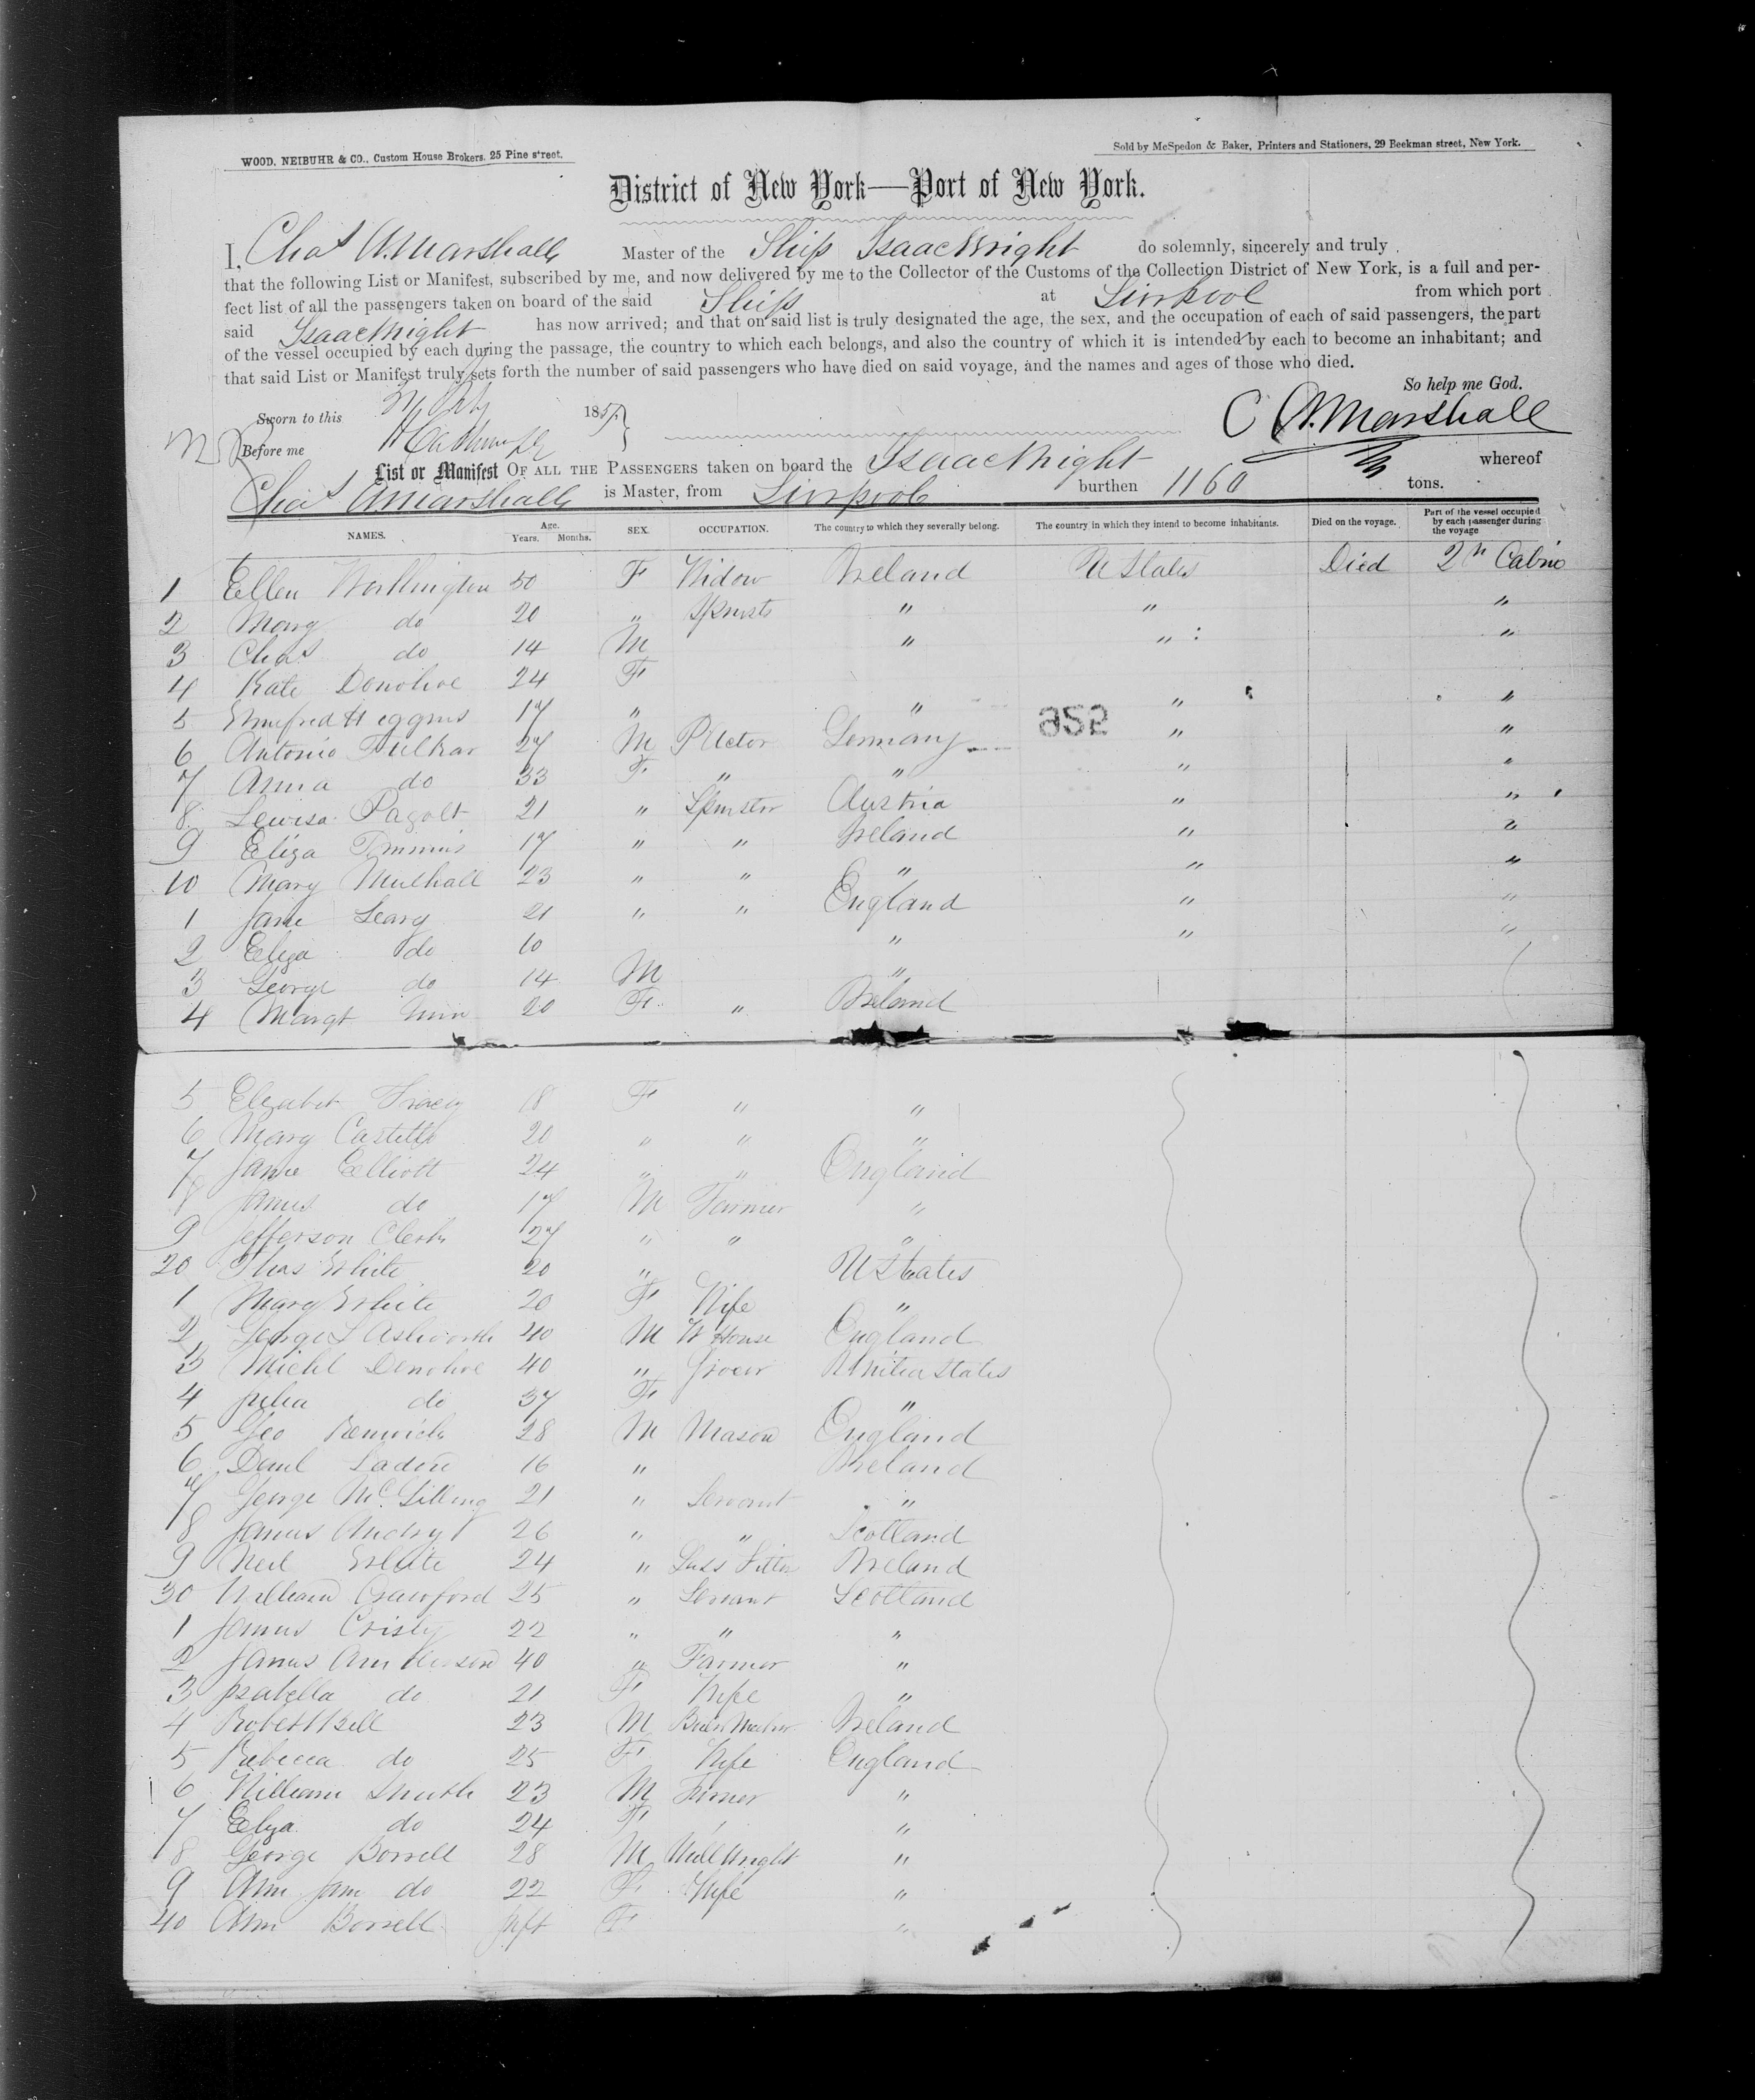 WOOD, NEIBUHR & CO., Custom House Brokers, 25 Pine street.
Sold by McSpedon & Baker, Printers and Stationers, 29 Beekman street, New York.
District of New York—Port of New York.
I, Chas A. Marshall Master of the Ship Isaac Wright do solemnly, sincerely and truly
that the following List or Manifest, subscribed by me, and now delivered by me to the Collector of the Customs of the Collection District of New York, is a full and per-
fect list of all the passengers taken on board of the said Ship at Liverpool from which port
said Isaac Wright has now arrived; and that on said list is truly designated the age, the sex, and the occupation of each of said passengers, the part
of the vessel occupied by each during the passage, the country to which each belongs, and also the country of which it is intended by each to become an inhabitant; and
that said List or Manifest truly sets forth the number of said passengers who have died on said voyage, and the names and ages of those who died.
So help me God.
Sworn to this 185
Before me
C A. Marshall
List or Manifest OF ALL THE PASSENGERS taken on board the Isaac Wright whereof
Chas A Marshall is Master, from Liverpool burthen 1160 tons.
NAMES. Age. Years. Months. SEX. OCCUPATION. The country to which they severally belong. The country in which they intend to become inhabitants. Died on the voyage. Part of the vessel occupied by each passenger during the voyage
1 Ellen Worthington 50 F Widow Ireland U States Died 2n Cabin
2 Mary do 20 " " " "
3 Chas do 14 M " " "
4 Kate Donohoe 24 F
5 Higgins 17 " " " "
6 Antonio 27 M Germany " "
952
7 Anna do 33 F " " " "
8 Lewisa Pagolt 21 " Spinster Austria " "
9 Eliza Timmins 17 " " Ireland " "
10 Mary Mulhall 23 " " " " "
1 Jane Leary 21 " " England " "
2 Eliza do 10 " " "
3 George do 14 M "
4 Margt 20 F " Ireland
5 Elizabet Tracey 18 F " "
6 Mary Castello 20 " " "
7 Jane Elliott 24 " " England
8 James do 17 M Farmer "
9 Jefferson Clerk 27 " " "
20 Thos White 20 " U States
1 Mary White 20 F Wife "
2 George S Ashworth 40 M W House England
3 Michl Donohoe 40 " Grocer United States
4 Julia do 37 F "
5 Geo Renwick 28 M Mason England
6 Danl 16 " Ireland
7 George Mc 21 " Servant "
8 James 26 " " Scotland
9 Neil White 24 " Ireland
30 William Crawford 25 " Servant Scotland
1 James Cristy 22 " " "
2 James Anderson 40 " Farmer "
3 Isabella do 21 F Wife "
4 Robert Bell 23 M Ireland
5 Rebecca do 25 F Wife England
6 William Smith 23 M "
7 Eliza do 24 F "
8 George Borrell 28 M Mill Wright "
9 Ann Jane do 22 F Wife "
40 Ann Borrell Inft F "